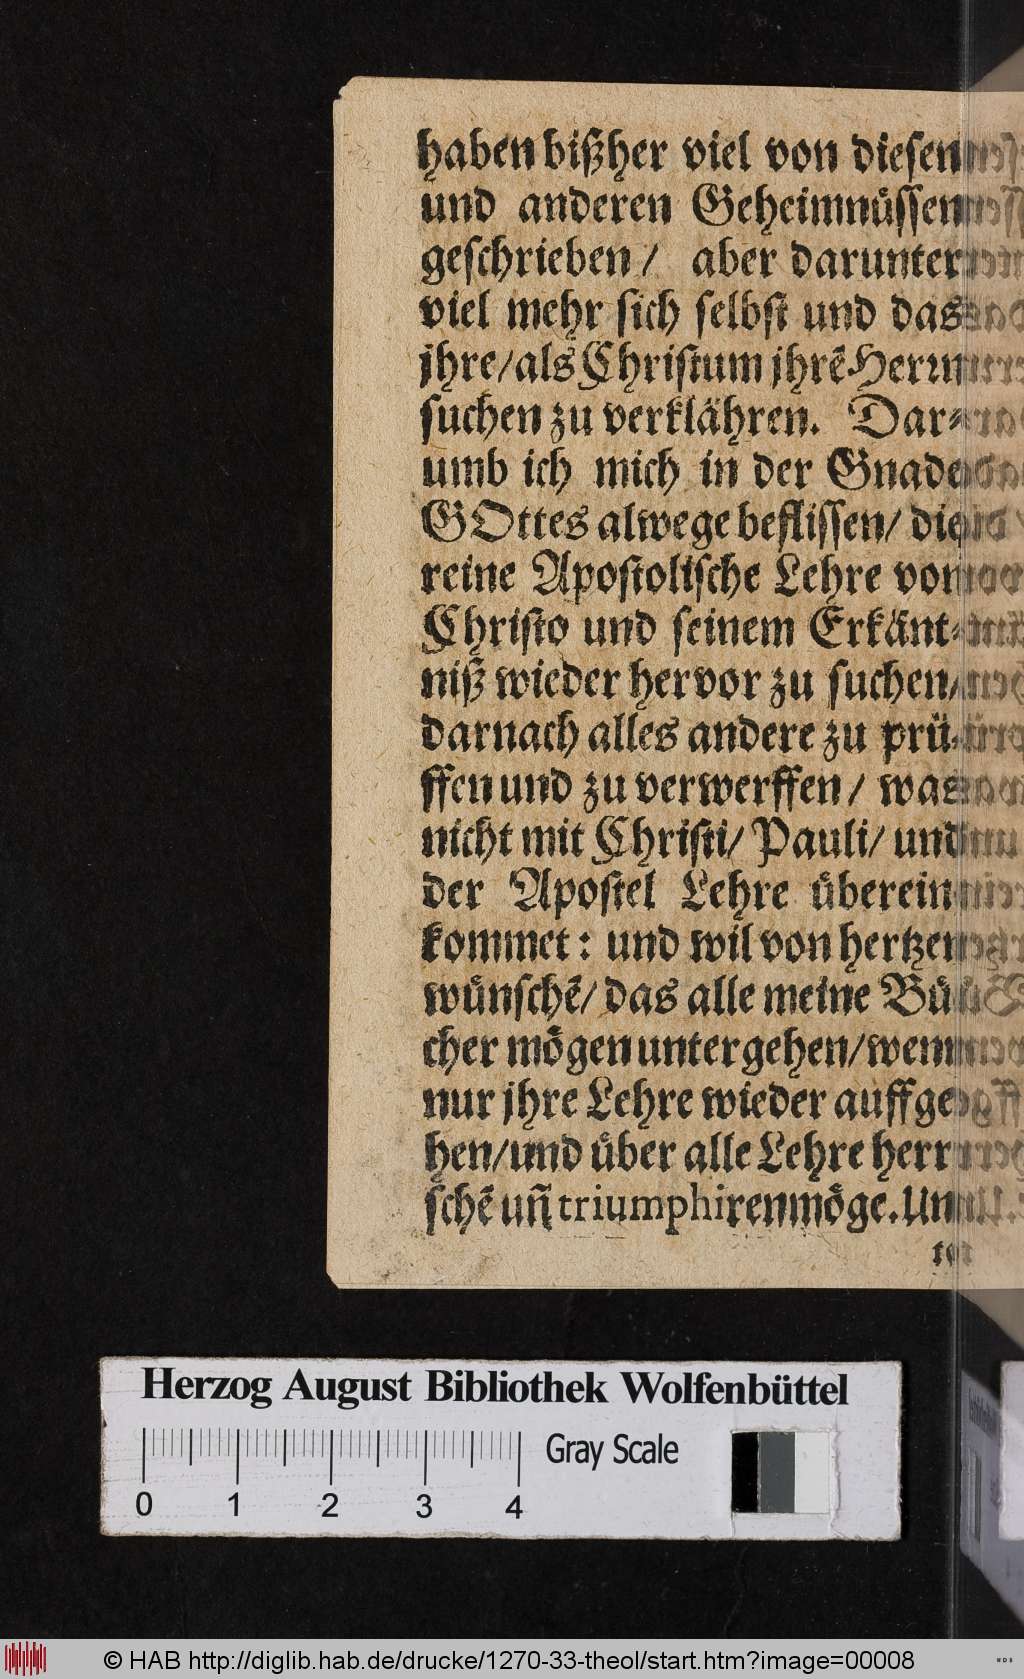 haben bißher viel von diesen
und anderen Geheimnuͤssen
geschrieben / aber darunter
viel mehr sich selbst und das
jhre/als Christum jhrẽ Herrn
suchen zu verklähren. Dar-
umb ich mich in der Gnade
GOttes alwege beflissen/ die
reine Apostolische Lehre von
Christo und seinem Erkänt-
niß wieder hervor zu suchen/
darnach alles andere zu prü-
ffen und zu verwerffen / was
nicht mit Christi/ Pauli/ und
der Apostel Lehre uͤberein
kommet: und wil von hertzen
wuͤnschẽ/ das alle meine Buͤ
cher moͤgen untergehen/wenn
nur jhre Lehre wieder auffge
hen/und uͤber alle Lehre herr
schẽ uñ triumphiren moͤge. Un
Herzog August Bibliothek Wolfenbüttel
Gray Scale
0 1 2 3 4
© HAB http://diglib.hab.de/drucke/1270-33-theol/start.htm?image=00008